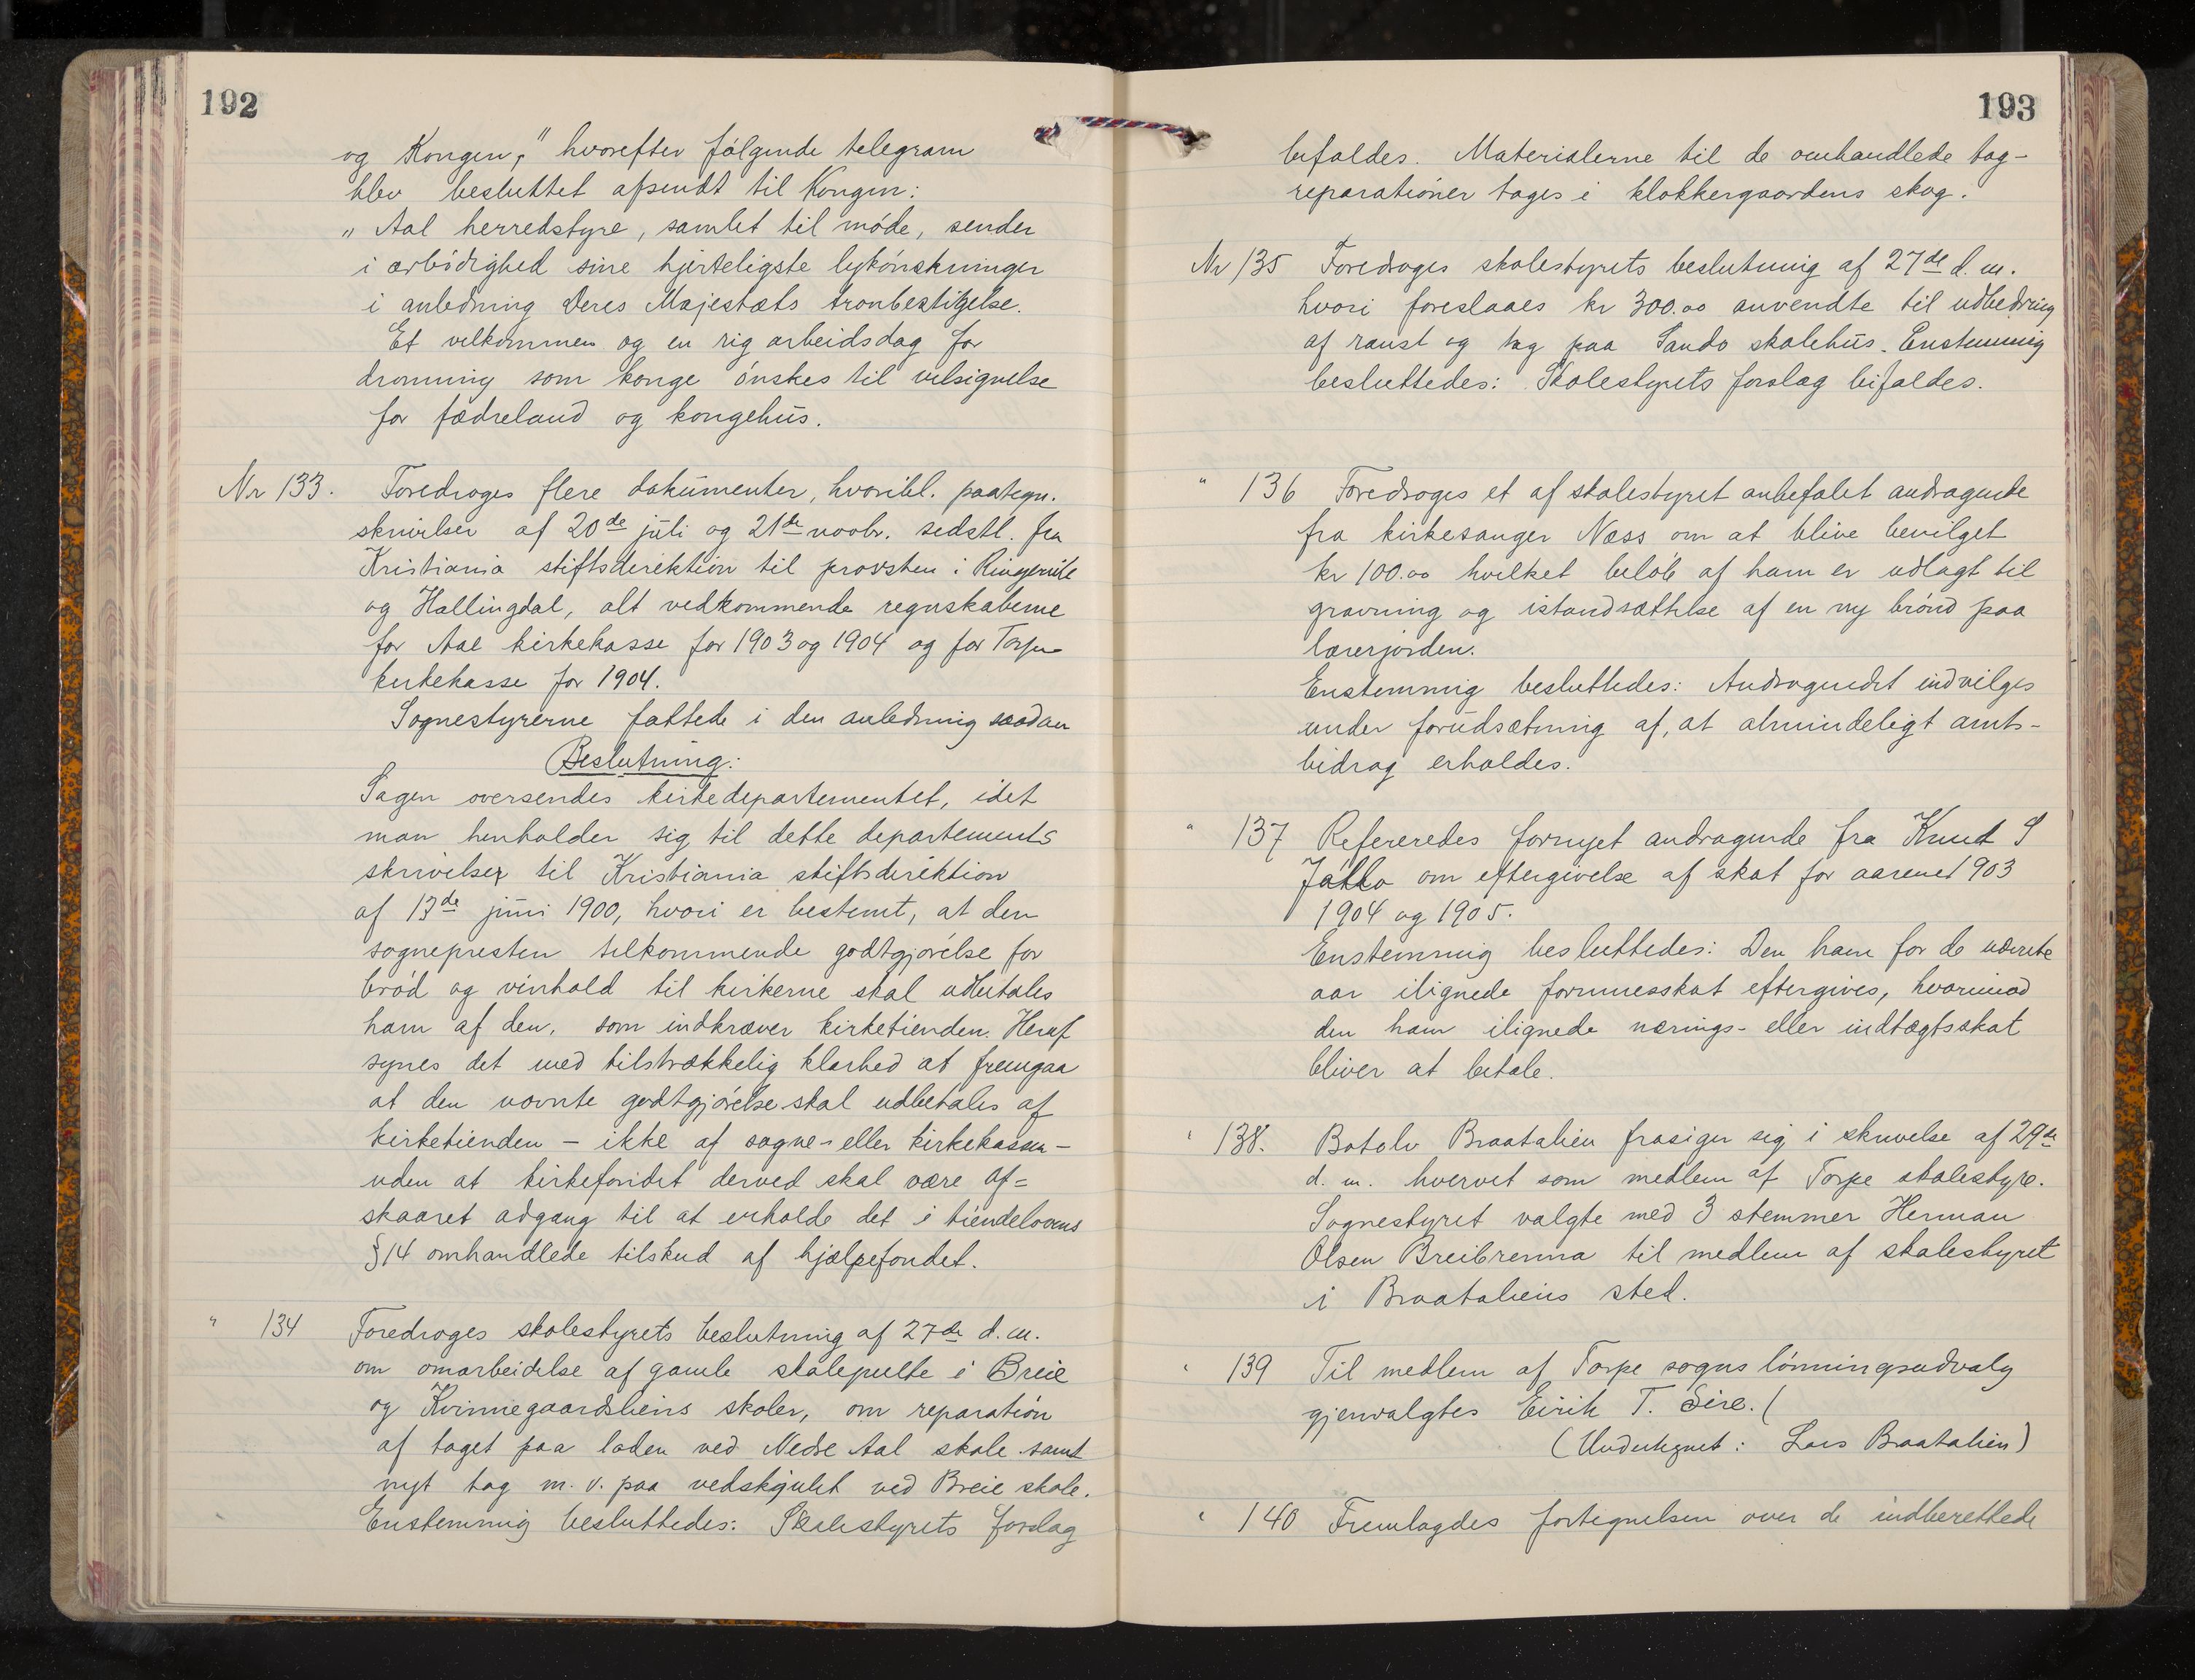 192
og Kongen," hvorefter følgende telegram
blev besluttet afsendt til Kongen:
„ Aal herredstyre, samlet til møde, sender
i ærbødighed sine hjerteligste lykønskninger
i anledning Deres Majestæts tronbestigelse.
Et velkommen og en rig arbeidsdag for
dronning som konge ønskes til velsignelse
for fædreland og kongehus.
Nr 133. Foredroges flere dokumenter, hvoribl. paategn.
skrivelser af 20de juli og 21de novbr. sidstl. fra
Kristiania stiftsdirektion til provsten i Ringerike
og Hallingdal, alt vedkommende regnskaberne
for Aal kirkekasse for 1903 og 1904 og for Torpe
kirkekasse for 1904.
Sognestyrerne fattede i den anledning saadan
Beslutning:
Sagen oversendes kirkedepartementet, idet
man henholder sig til dette departements
skrivelser til Kristiania stiftsdirektion
af 13de juni 1900, hvori er bestemt, at den
sognepresten tilkommende godtgjørelse for
brød og vinhold til kirkerne skal udbetales
ham af den, som indkræver kirketienden. Heraf
synes det med tilstrækkelig klarhed at fremgaa
at den nævnte godtgjørelse skal udbetales af
kirketienden – ikke af sogne- eller kirkekassen –
uden at kirkefondet derved skal være af=
skaaret adgang til at erholde det i tiendelovens
§14 omhandlede tilskud af hjælpefondet.
" 134 Foredroges skolestyrets beslutning af 27de d.m.
om omarbeidelse af gamle skolepulte i Breie
og Kvinnegaardsliens skoler, om reparation
af taget paa laden ved Nedre Aal skole samt
nyt tag m.v. paa vedskjulet ved Breie skole.
Enstemmig besluttedes: Skolestyrets forslag
193
bifaldes. Materialerne til de omhandlede tag-
reparationer tages i klokkergaardens skog.
Nr 135 Foredroges skolestyrets beslutning af 27de d.m.
hvori foreslaaes kr 300.00 anvendte til udbedring
af raust og tag paa Sando skolehus. Enstemmig
besluttedes: Skolestyrets forslag bifaldes.
" 136 Foredroges et af skolestyret anbefalet andragende
fra kirkesanger Næss om at blive bevilget
kr 100.00 hvilket beløb af ham er udlagt til
gravning og istandsættelse af en ny brønd paa
lærerjorden.
Enstemmig besluttedes: Andragendet indvilges
under forudsætning af, at almindeligt amts-
bidrag erholdes.
" 137 Refereredes fornyet andragende fra Knut S
om eftergivelse af skat for aarene 1903
1904 og 1905.
Enstemmig besluttedes: Den ham for de nævnte
aar ilignede formuesskat eftergives, hvorimod
den ham ilignede nærings- eller indtægtsskat
bliver at betale.
" 138. Botolv Braatalien frasiger sig i skrivelse af 29de
d.m. hvervet som medlem af Torpe skolestyre.
Sognestyret valgte med 3 stemmer Herman
Olsen Breibrenna til medlem af skolestyret
i Braataliens sted.
" 139 Til medlem af Torpe sogns lønningsudvalg
gjenvalgtes Eirik T. Sire. (
(Undertegnet: Lars Braatalien)
" 140 Fremlagdes fortegnelsen over de indberettede